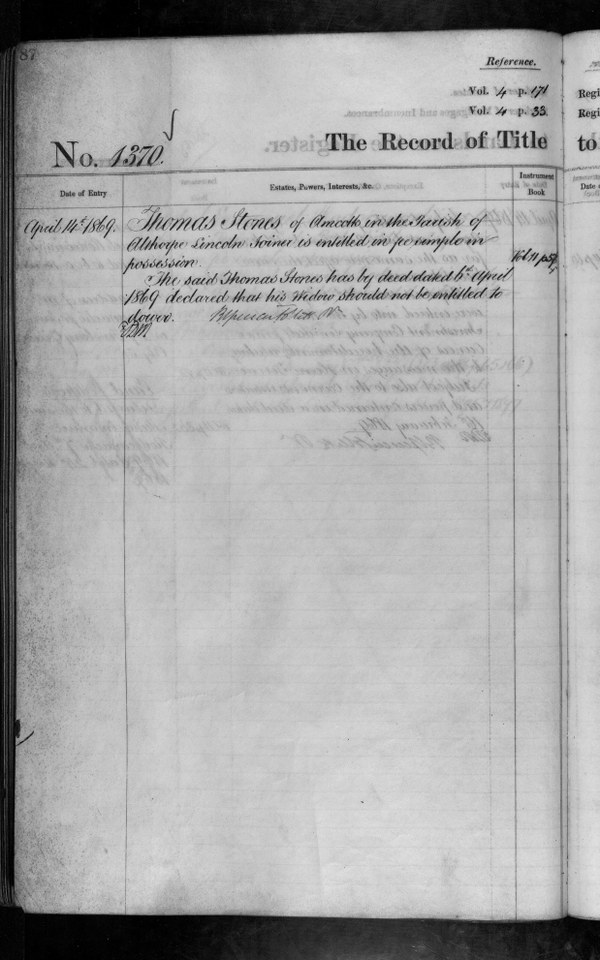 87
Reference.
Vol. 4 p. 171
Vol. 4 p. 33
No. 1370.
The Record of Title
Date of Entry
Estates, Powers, Interests, &c.
Instrument Book
April 14th 1869.
Thomas Stones of Amcotts in the Parish of
Althorpe Lincoln Joiner is entitled in fee simple in
possession.
Vol. 11 p.
The said Thomas Stones has by deed dated 6th April
1869 declared that his Widow should not be entitled to
dower.
Regi
Regi
to
Date o